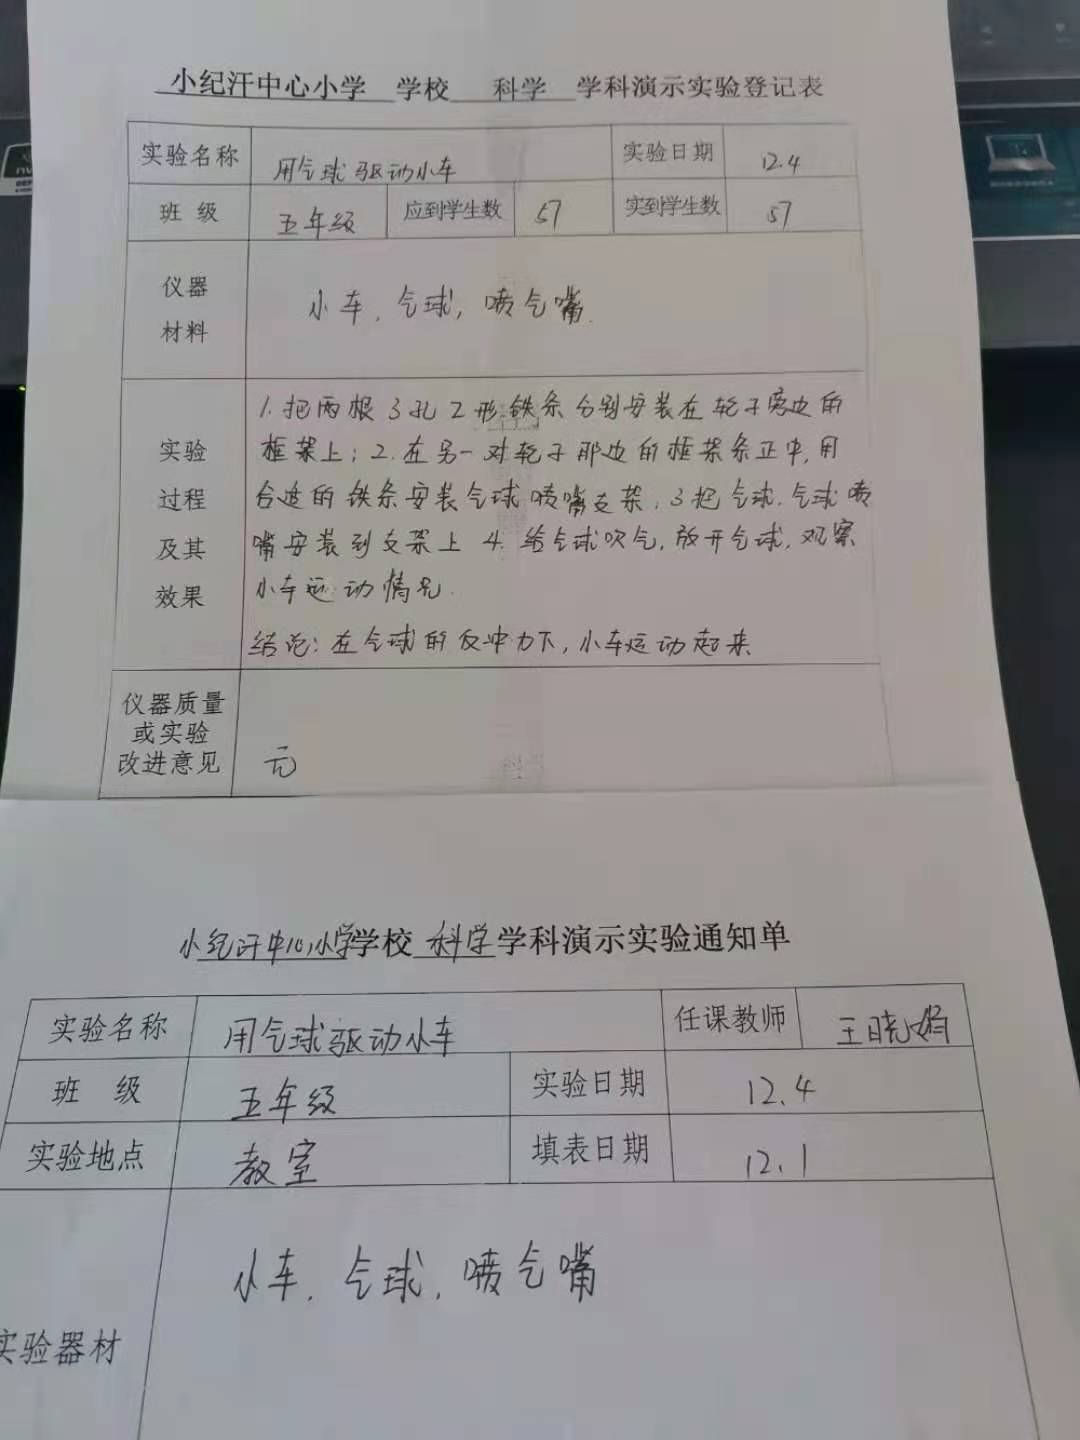 小纪汗中心小学 学校 科学 学科演示实验登记表
实验名称 用气球驱动小车 实验日期 12.4
班 级 五年级 应到学生数 57 实到学生数 57
仪器
材料
小车，气球，喷气嘴.
实验
过程
及其
效果
1.把两根3孔Z形铁条分别安装在轮子旁边的
框架上；2.在另一对轮子那边的框架条正中,用
合适的铁条安装气球喷嘴支架，3把气球.气球喷
嘴安装到支架上 4.给气球吹气,放开气球,观察
小车运动情况.
结论:在气球的反冲力下,小车运动起来
仪器质量
或实验
改进意见
无
小纪汗中心小学学校 科学 学科演示实验通知单
实验名称 用气球驱动小车 任课教师 王晓娟
班 级 五年级 实验日期 12.4
实验地点 教室 填表日期 12.1
实验器材
小车，气球，喷气嘴